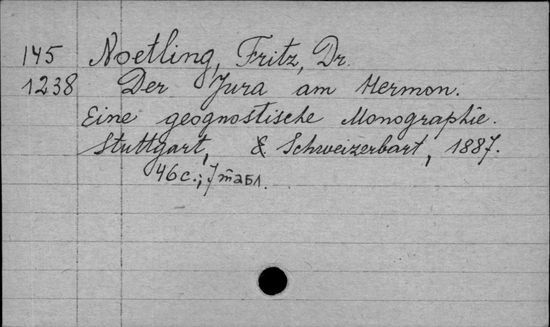 145 Noetling, Fritz, Dr.
1238 Der Jura am Hermon.
Eine geognostische Monographie.
Stuttgart, E. Schweizerbart, 1887.
46 с.; 7 табл.